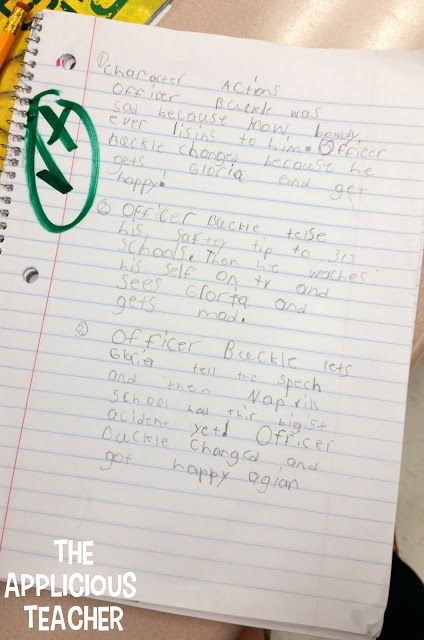 ① Character Actions
Officer Buckle was
sad because know bowdy
ever lisins to him. Officer
backle changes because he
gets Gloria and get
happy!
② Officer Buckle telse
his saftey tip to 313
schools. Then he waches
his self on tv and
sees Gloria and
gets mad.
③ Officer Buckle lets
Gloria tell the spech
and then Napvill
school had thir bigist
acident yet! Officer
Buckle Changed and
got happy agian
THE
APPLICIOUS
TEACHER